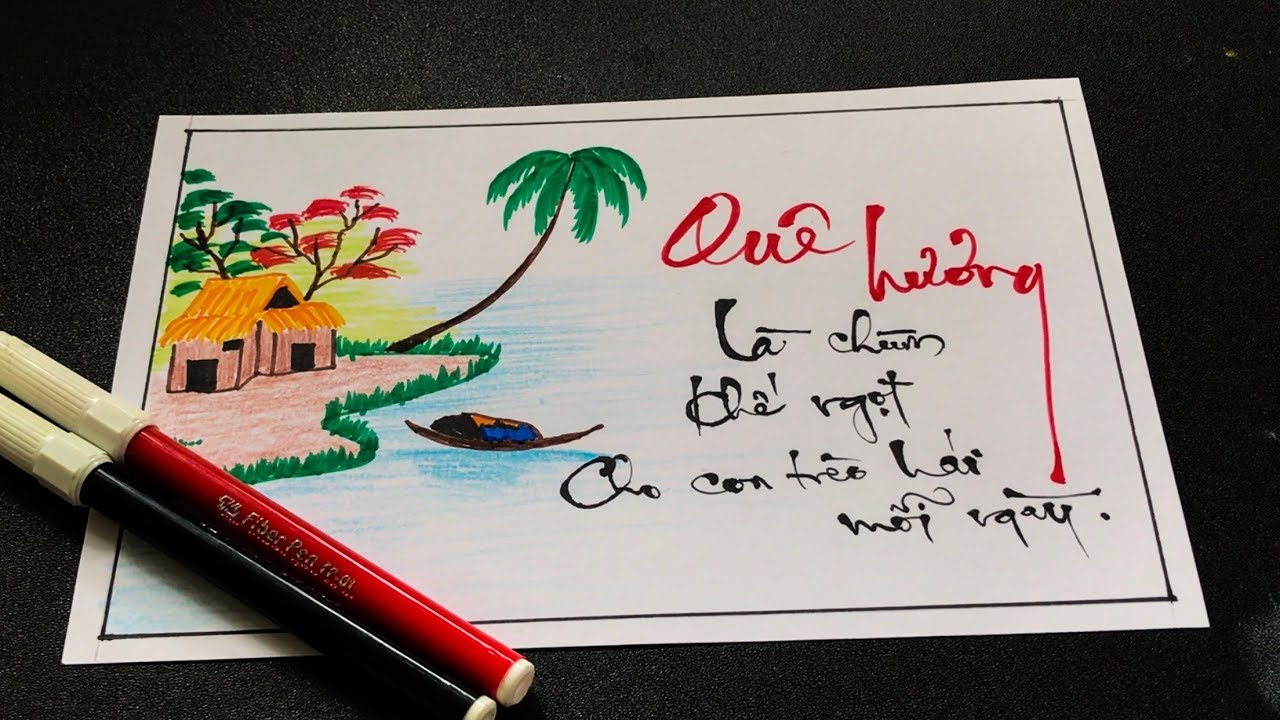 Quê
hương
là chùm
khế ngọt
Cho con trèo hái
mỗi ngày.
Fiber Pen FP-01